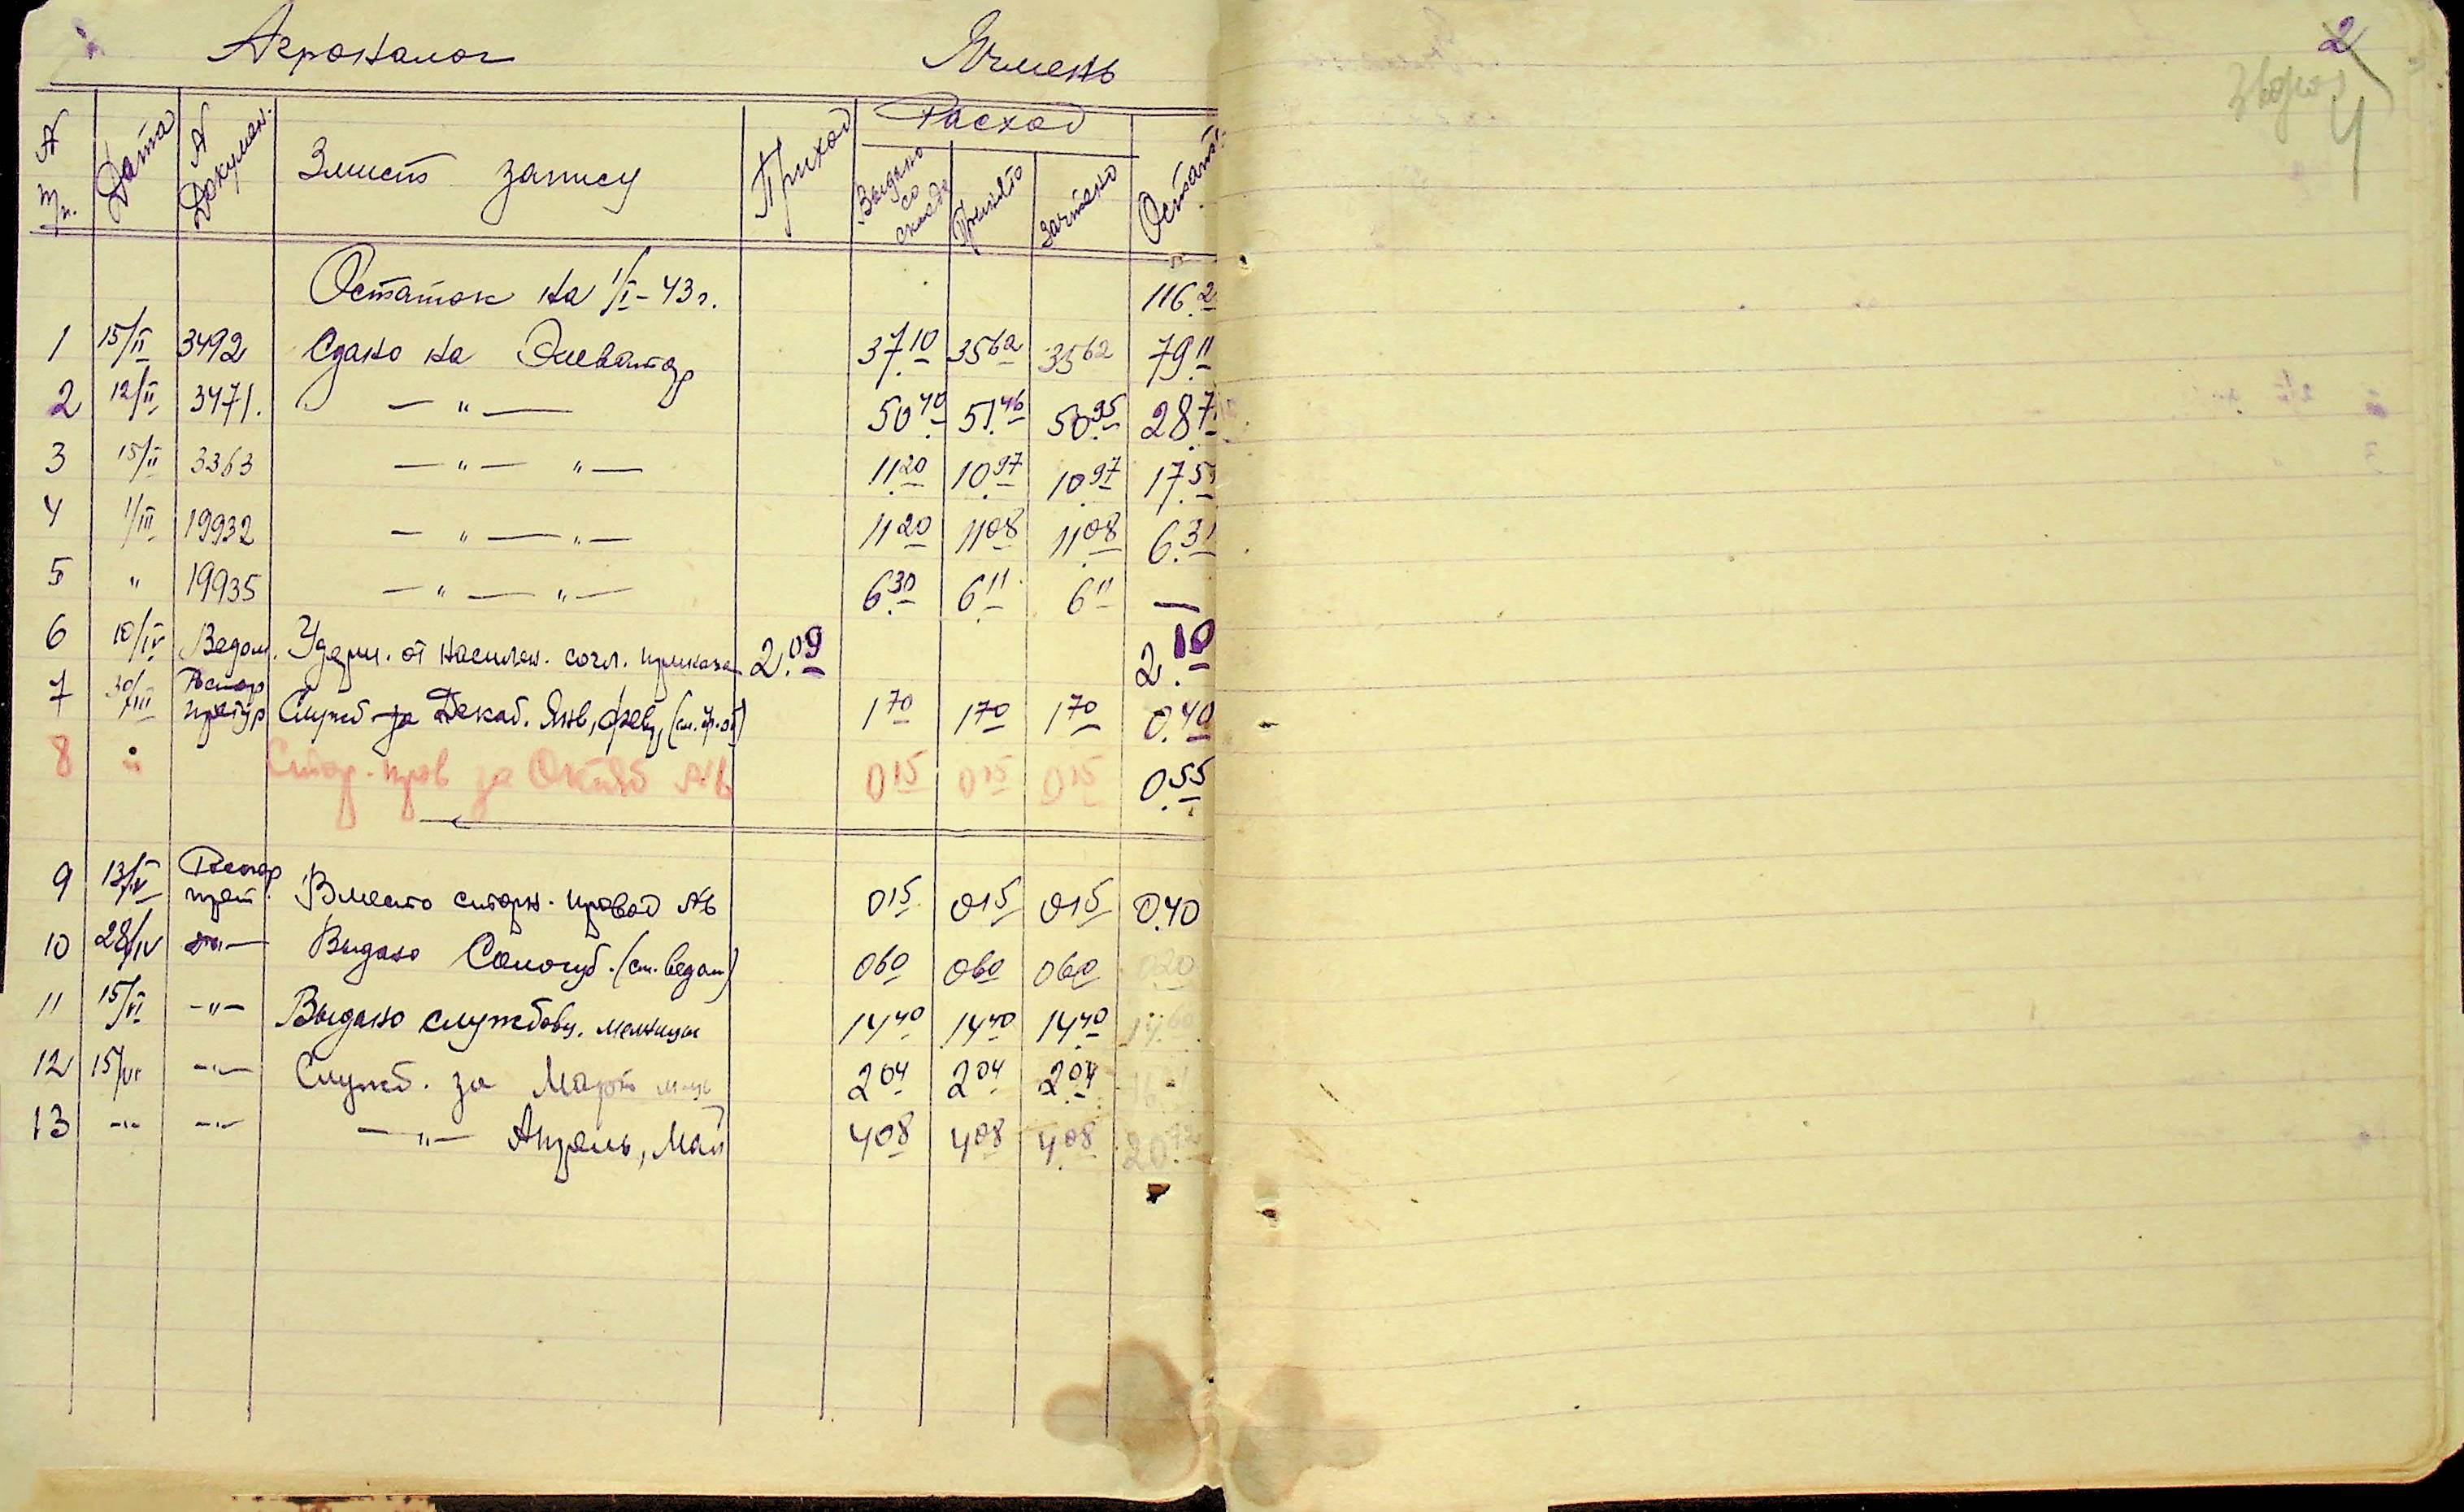 Агроналог Ячмень
№ п/п. Дата № Докумен. Зміст запису Приход Расход Выдано со склада Принято Зачтено Остат.
Остаток на 1/I - 43 г. 116.2
1 15/II 3492 Сдано на Элеватор 37.10 35 62 35 62 79.11
2 12/II 3471. — " — 50.40 51.46 50.95 28.7
3 15/II 3363 — " — " — 11.20 10.97 10.97 17.5
4 1/III 19932 — " — " — 11 20 11 08 11 08 6.31
5 " 19935 — " — " — 6.30 6 11 6 11 —
6 10/IV Ведом. Удерж. от населен. согл. приказа 2.09 2.10
7 30/III Служб за Декаб. Янв, февр, 1 70 1 70 1 70 0.40
8 " Стор. пров за Октяб №6 0 15 0 15 0 15 0.55
9 13/IV Вместо сторн. провод №6 0 15 0 15 0 15 0.40
10 28/IV — " — Выдано (см. ведом) 0 60 0 60 0 60 0 20
11 15/VI - " - Выдано службовц. мельницы 14 40 14 40 14 40 14.60
12 15/VI - " - Служб. за Март м-ць 2 04 2 04 2.04
13 - " - - " - — " — Апрель, Май 4 08 4 08 4 08
2
Зворот
4